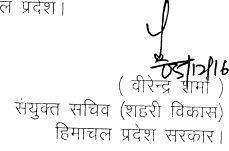 ल प्रदेश।
05/12/16
( वीरेन्द्र शर्मा )
संयुक्त सचिव (शहरी विकास)
हिमाचल प्रदेश सरकार।